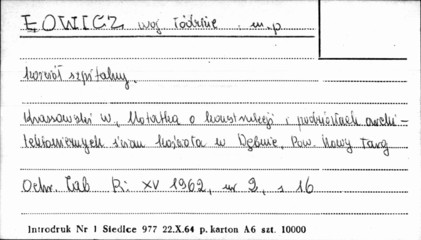 ŁOWICZ, woj. łódzkie . m.p
kościół szpitalny.
Krassowski W, Notatka o konstrukcji i podziałach archi-
tektonicznych ścian kościoła w Dębnie, Pow. Nowy Targ
Ochr. Zab R: XV 1962, nr 2, s 16
Introdruk Nr 1 Siedlce 977 22.X.64 p. karton A6 szt. 10000